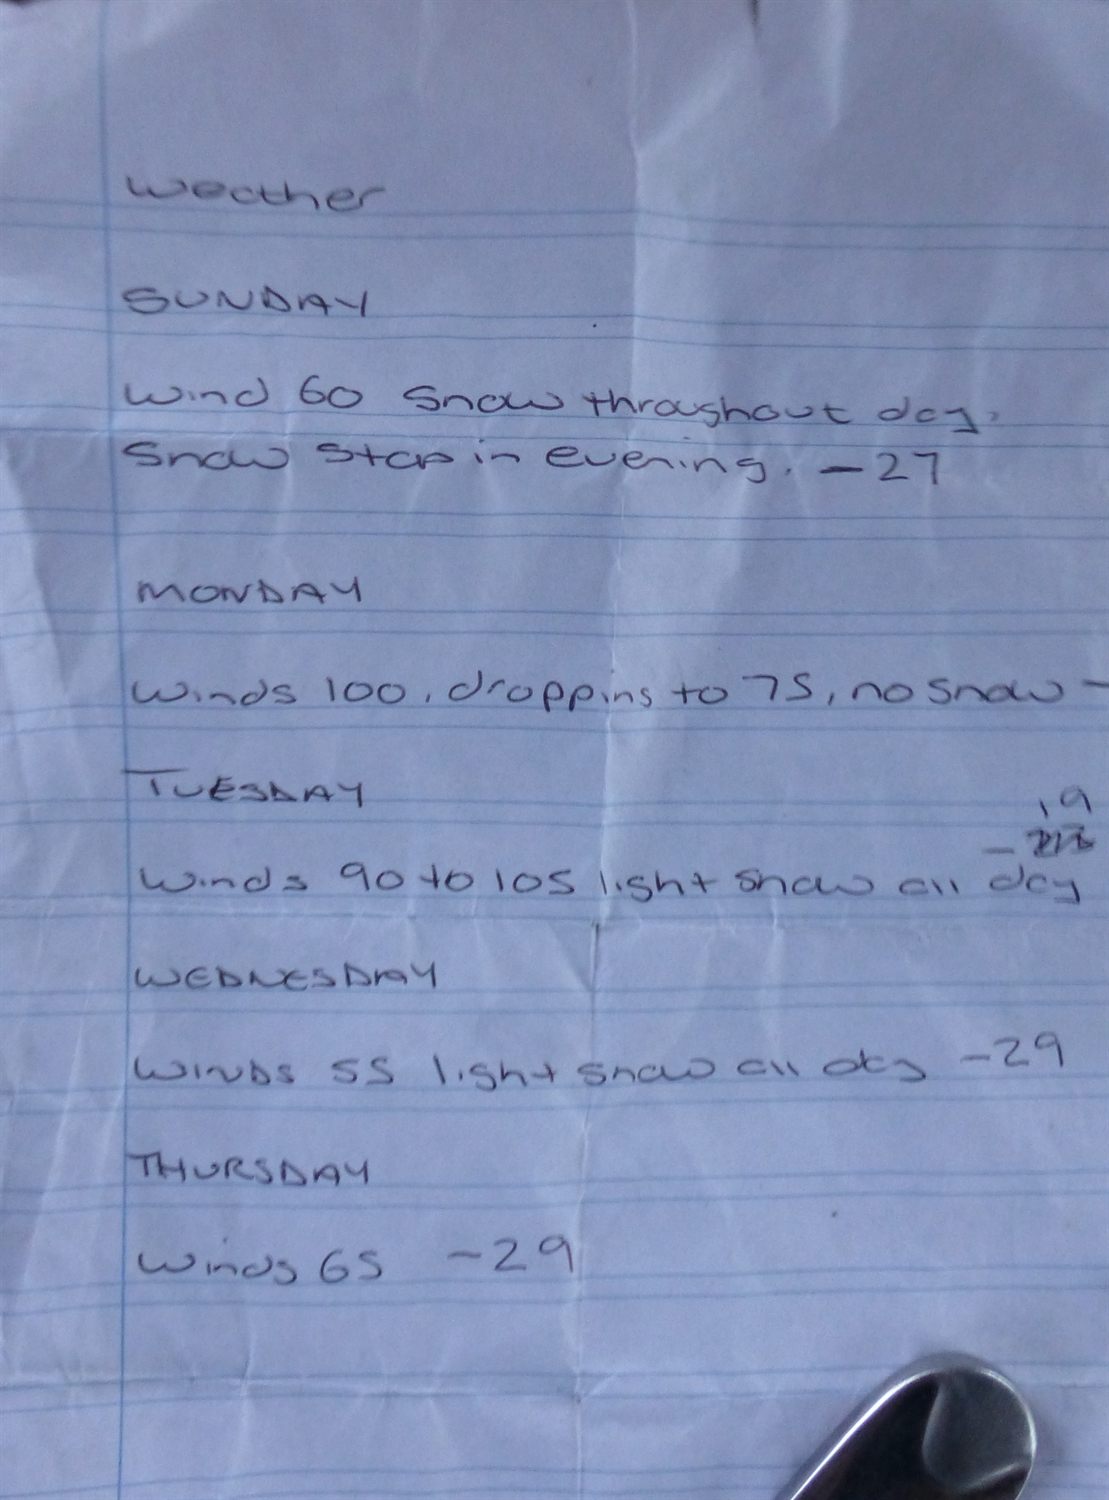 Weather
SUNDAY
Wind 60 Snow throughout day.
Snow stop in evening. -27
MONDAY
Winds 100, dropping to 75, no snow -
TUESDAY
19
-
Winds 90 to 105 light snow all day
WEDNESDAY
WINDS 55 light snow all day -29
THURSDAY
Winds 65 -29